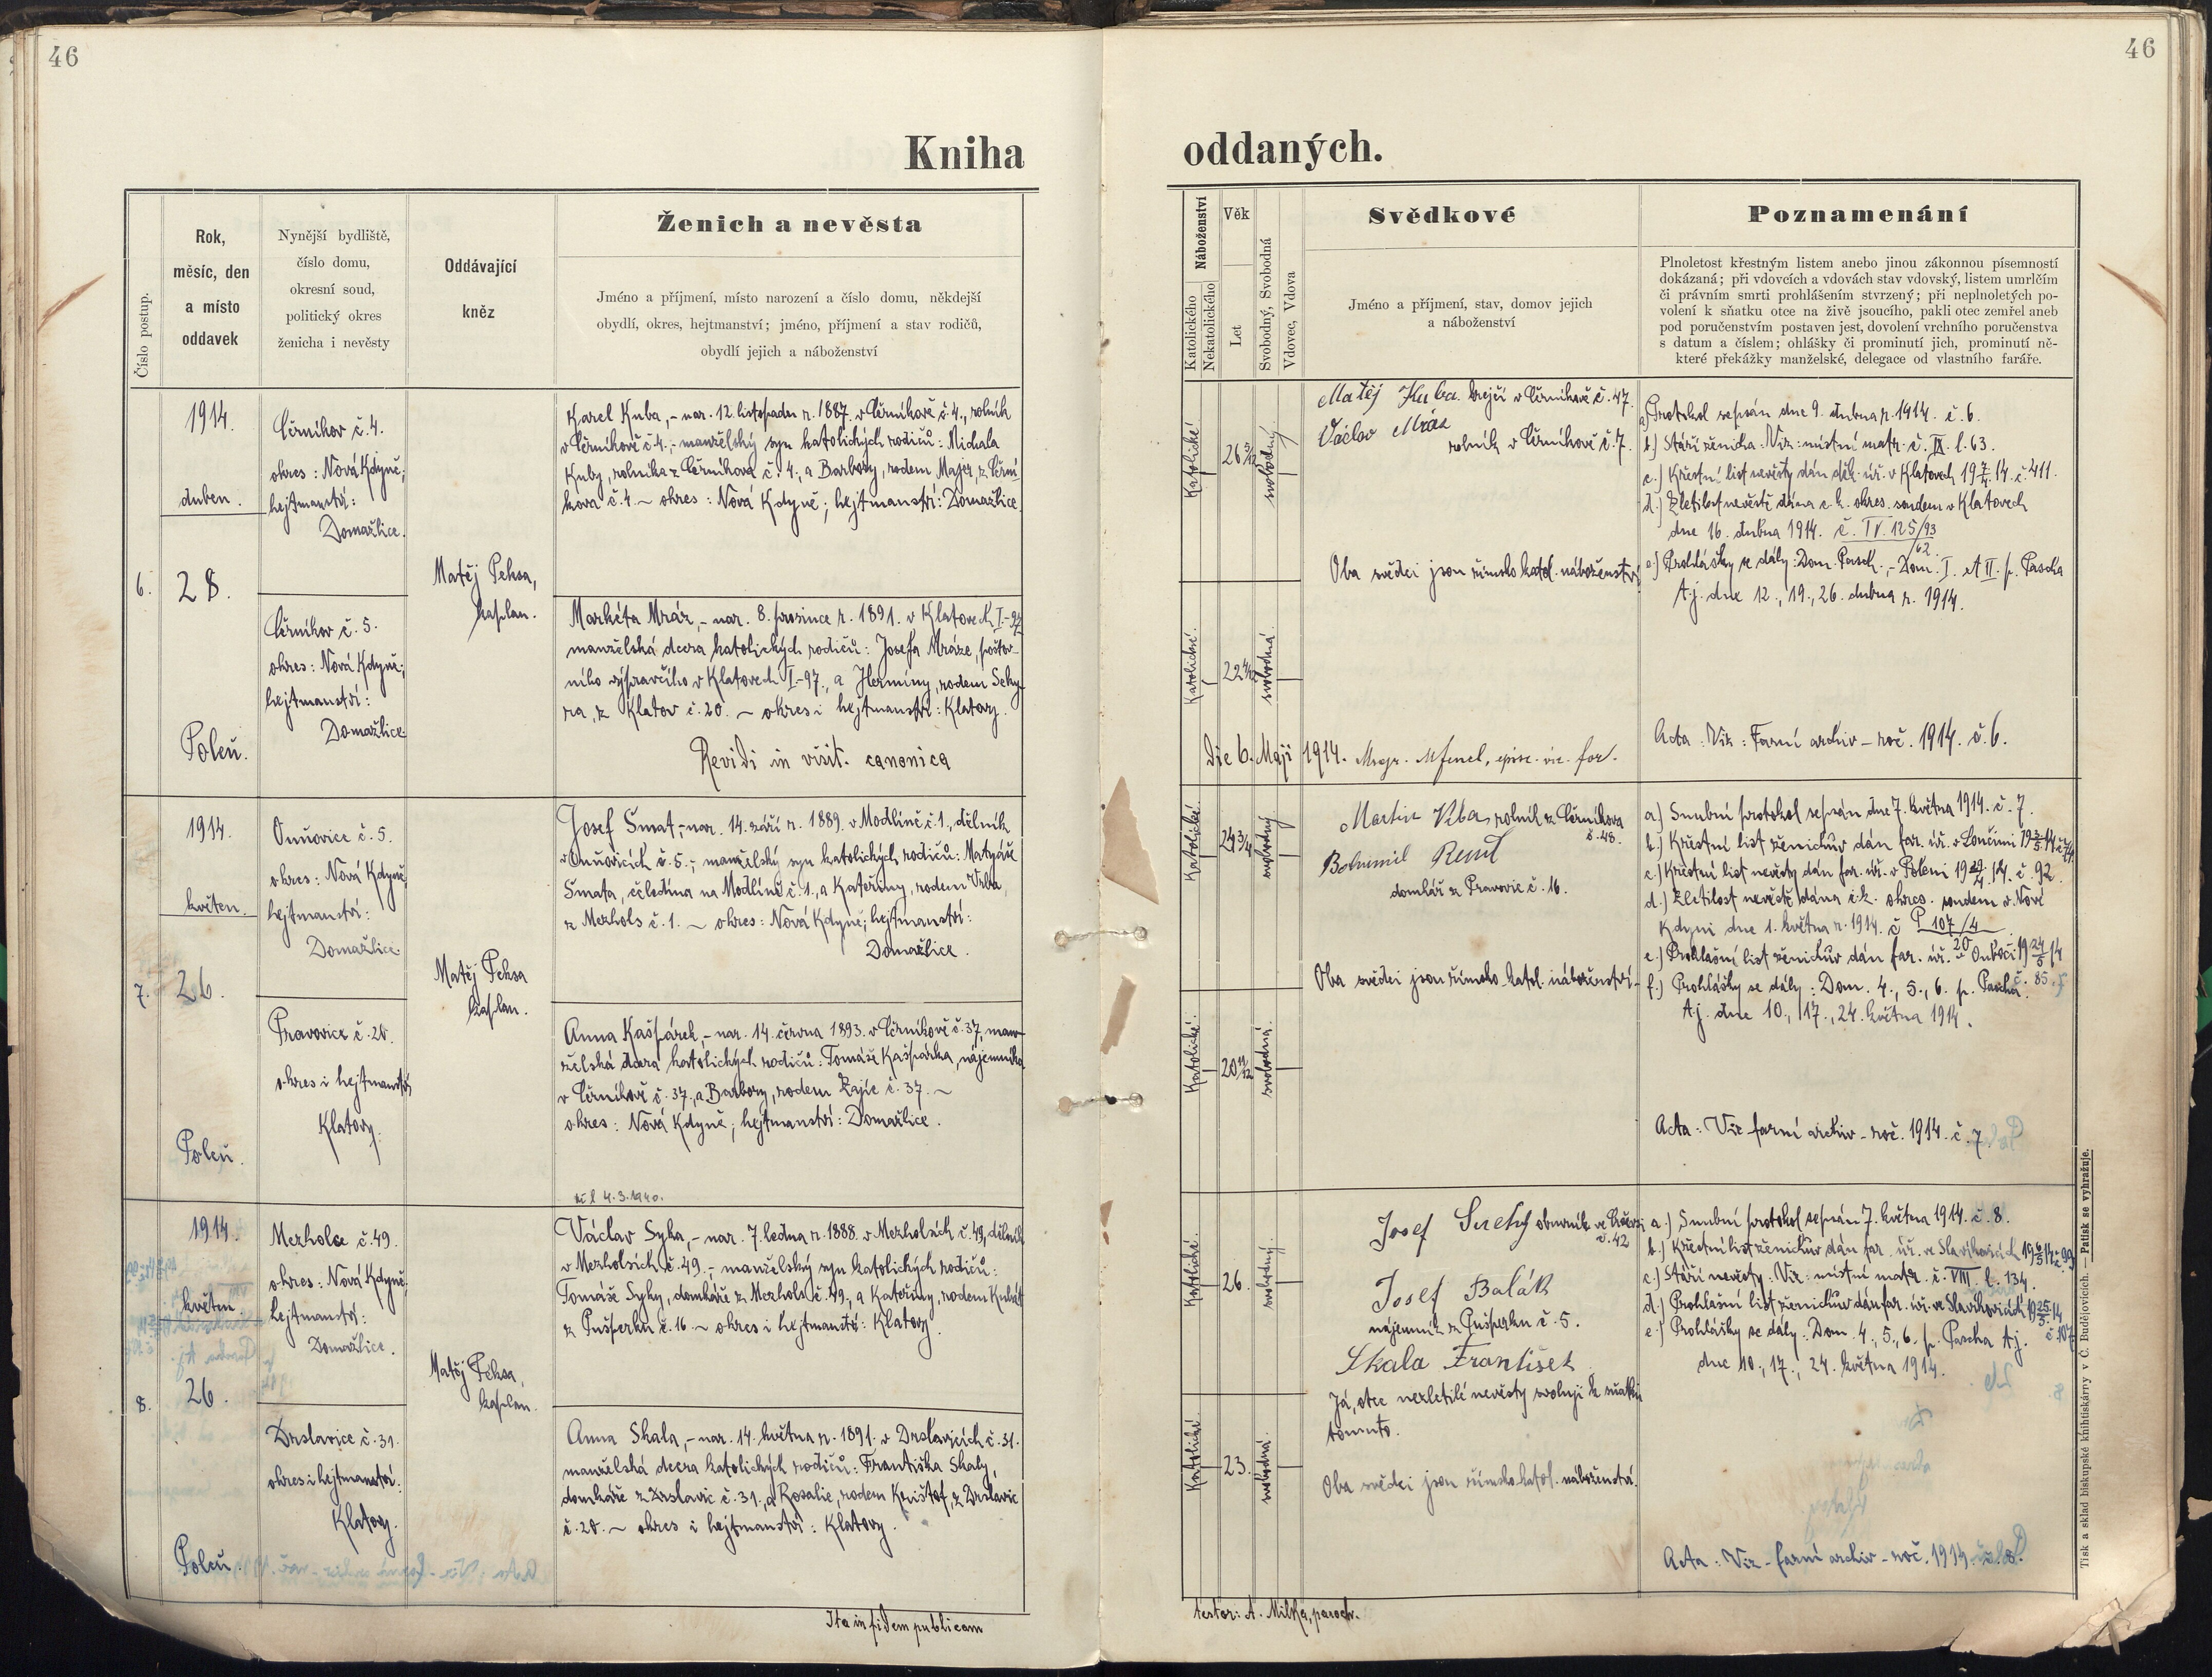 46
46
Kniha
oddaných.
Číslo postup.
Rok,
měsíc, den
a místo
oddavek
Nynější bydliště,
číslo domu,
okresní soud,
politický okres
ženicha i nevěsty
Oddávající
kněz
Ženich a nevěsta
Jméno a příjmení, místo narození a číslo domu, někdejší
obydlí, okres, hejtmanství; jméno, příjmení a stav rodičů,
obydlí jejich a náboženství
Náboženství
Katolického
Nekatolického
Věk
Let
Svobodný, Svobodná
Vdovec, Vdova
Svědkové
Jméno a příjmení, stav, domov jejich
a náboženství
Poznamenání
Plnoletost křestným listem anebo jinou zákonnou písemností
dokázaná; při vdovcích a vdovách stav vdovský, listem umrlčím
či právním smrti prohlášením stvrzený; při neplnoletých po-
volení k sňatku otce na živě jsoucího, pakli otec zemřel aneb
pod poručenstvím postaven jest, dovolení vrchního poručenstva
s datum a číslem; ohlášky či prominutí jich, prominutí ně-
které překážky manželské, delegace od vlastního faráře.
6.
1914.
duben.
28.
Poleň.
Černíkov č. 4.
okres: Nová Kdyně;
hejtmanství:
Domažlice.
Černíkov č. 5.
okres: Nová Kdyně;
hejtmanství:
Domažlice.
Matěj Peksa,
kaplan.
Karel Kuba, - nar. 12. listopadu r. 1887. v Černíkově č. 4., rolník
v Černíkově č. 4., - manželský syn katolických rodičů: Michala
Kuby, rolníka z Černíkova č. 4., a Barbory, rodem Majer, z Černí-
kova č. 4. ~ okres: Nová Kdyně; hejtmanství: Domažlice.
Markéta Mráz, - nar. 8. prosince r. 1891. v Klatovech I.-97
manželská dcera katolických rodičů: Josefa Mráze, poštov-
ního výpravčího v Klatovech I.-97., a Hermíny, rodem Seky-
ra, z Klatov č. 20. ~ okres i hejtmanství: Klatovy.
Revidi in visit. canonica
Die 6. Maji 1914.
Katolické.
26 5/12
svobodný
Katolické.
22 4/12
svobodná.
Matěj Kuba. krejčí v Černíkově č. 47.
Václav Mráz
rolník v Černíkově č. 7.
Oba svědci jsou římsko-katol. náboženství.
a) Protokol sepsán dne 9. dubna r. 1914. č. 6.
b.) Stáří ženicha: Viz: místní matr. č. IX. l. 63.
c.) Křestní list nevěsty dán děk. úř. v Klatovech 19 7/4 14. č. 411.
d.) Zletilost nevěstě dána c. k. okres. soudem v Klatovech
dne 16. dubna 1914. č. IV. 125/93
62.
e.) Prohlášky se dály: Dom. Pasch., - Dom. I. et II. p. Pascha
A.j. dne 12., 19., 26. dubna r. 1914.
Acta: Viz: Farní archiv - roč. 1914. č. 6.
7.
1914.
květen.
26.
Poleň.
Úňovice č. 5.
okres: Nová Kdyně;
hejtmanství:
Domažlice.
Pravovice č. 20.
okres i hejtmanství
Klatovy.
Matěj Peksa
kaplan.
Josef Šmat, - nar. 14. září r. 1889. v Modlíně č. 1., dělník
v Úňovicích č. 5., - manželský syn katolických rodičů: Matyáše
Šmata, čeledína na Modlíně č. 1., a Kateřiny, rodem Vrba,
z Mezhols č. 1. ~ okres: Nová Kdyně; hejtmanství:
Domažlice.
Anna Kašpárek, - nar. 14. června 1893. v Černíkově č. 37, man-
želská dcera katolických rodičů: Tomáše Kašpárka, nájemníka
v Černíkově č. 37., a Barbory, rodem Zajíc č. 37. ~
okres: Nová Kdyně; hejtmanství: Domažlice.
Katolické.
24 3/4
svobodný
Katolické.
20 11/12
svobodná.
Martin Vrba, rolník z Černíkova
č. 48.
Bohumil
domkář z Pravovic č. 16.
Oba svědci jsou římsko-katol. náboženství.
a) Snubní protokol sepsán dne 7. května 1914. č. 7.
b.) Křestní list ženichův dán far. úř. v Loučimi
c.) Křestní list nevěsty dán far. úř. v Poleni 19 29/4 14. č. 92.
d.) Zletilost nevěstě dána c. k. okres. soudem v Nové
Kdyni dne 1. května r. 1914. č. P 107/4
20
e.) Prohlašní list ženichův dán far. úř. v 19 24/5 14
č. 85.
f.) Prohlášky se dály: Dom. 4., 5., 6. p. Pascha.
A.j. dne 10., 17., 24. května 1914.
Acta: Viz farní archiv - roč. 1914. č. 7
8.
1914.
květen.
26.
Poleň.
Mezholce č. 49.
okres: Nová Kdyně;
hejtmanství:
Domažlice.
Drslavice č. 31.
okres i hejtmanství:
Klatovy.
Matěj Peksa,
kaplan.
4. 3. 1940.
Václav Syka, - nar. 7. ledna r. 1888. v Mezholcích č. 49, dělník
v Mezholcích č. 49. - manželský syn katolických rodičů:
Tomáše Syky, domkáře z Mezhols č. 49., a Kateřiny, rodem
z Pušperku č. 16. ~ okres i hejtmanství: Klatovy.
Anna Skala, - nar. 14. května r. 1891. v Drslavicích č. 31.
manželská dcera katolických rodičů: Františka Skaly,
domkáře z Drslavic č. 31., a Rosalie, rodem Krištof, z Drslavic
č. 20. ~ okres i hejtmanství: Klatovy.
Katolické.
26.
svobodný.
Katolické.
23.
svobodná.
Josef Suchý
č. 42
Josef Balák
nájemník z Pušperku č. 5.
Skala František
Já, otec nezletilé nevěsty svoluji k sňatku
tomuto.
Oba svědci jsou římsko-katol. náboženství.
a.) Snubní protokol sepsán 7. května 1914. č. 8.
b.) Křestní list ženichův dán far. úř. ve Slavíkovicích 19 6/5 14 č. 99
c.) Stáří nevěsty: Viz: místní matr. č. VIII. l. 134.
d.) Prohlašní list ženichův dán far. úř. ve Slavíkovicích 19 25/5 14
č. 107
e.) Prohlášky se dály: Dom. 4., 5., 6. p. Pascha A.j.
dne 10., 17., 24. května 1914.
Acta: Viz - farní archiv - roč. 1914. č. 8.
Ita in fidem publicam
testor: A. Milka, paroch.
Tisk a sklad biskupské knihtiskárny v Č. Budějovicích. — Patisk se vyhražuje.